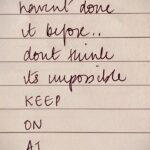 haven't done
it before..
dont think
its impossible
KEEP
ON
AT